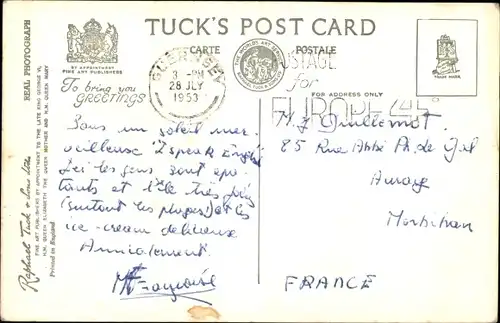 TUCK'S POST CARD
CARTE POSTALE
BY APPOINTMENT
FINE ART PUBLISHERS
THE WORLD'S ART SERVICE
TRADE MARK
GUERNSEY
3 - PM
28 JLY
1953
POSTAGE
for
EUROPE
FOR ADDRESS ONLY
To bring you
GREETINGS
REAL PHOTOGRAPH
Raphael Tuck & Sons Ltd
FINE ART PUBLISHERS BY APPOINTMENT TO THE LATE KING GEORGE VI,
H.M. QUEEN ELIZABETH THE QUEEN MOTHER AND H.M. QUEEN MARY
Printed in England
Sous un soleil mer
veilleuse I speak English
Ici les gens sont épa
tants et l'île très jolie
(surtout les plages) et les
ice-cream délicieuse
Amicalement.
Françoise
85 Rue Abbé Ph. le Gal
Auray
Morbihan
FRANCE